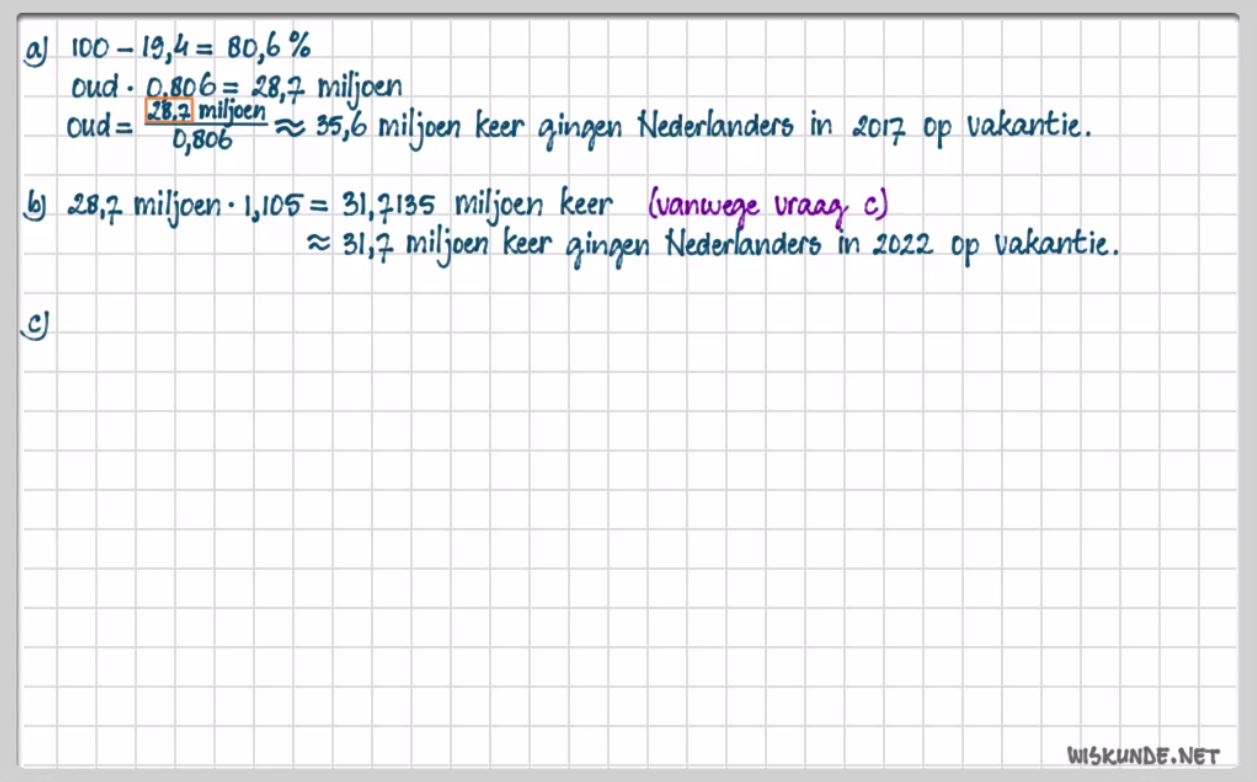 a) 100 – 19,4 = 80,6 %
oud · 0,806 = 28,7 miljoen
oud = 28,7 miljoen / 0,806 ≈ 35,6 miljoen keer gingen Nederlanders in 2017 op vakantie.
b) 28,7 miljoen · 1,105 = 31,7135 miljoen keer (vanwege vraag c)
≈ 31,7 miljoen keer gingen Nederlanders in 2022 op vakantie.
c)
WISKUNDE.NET